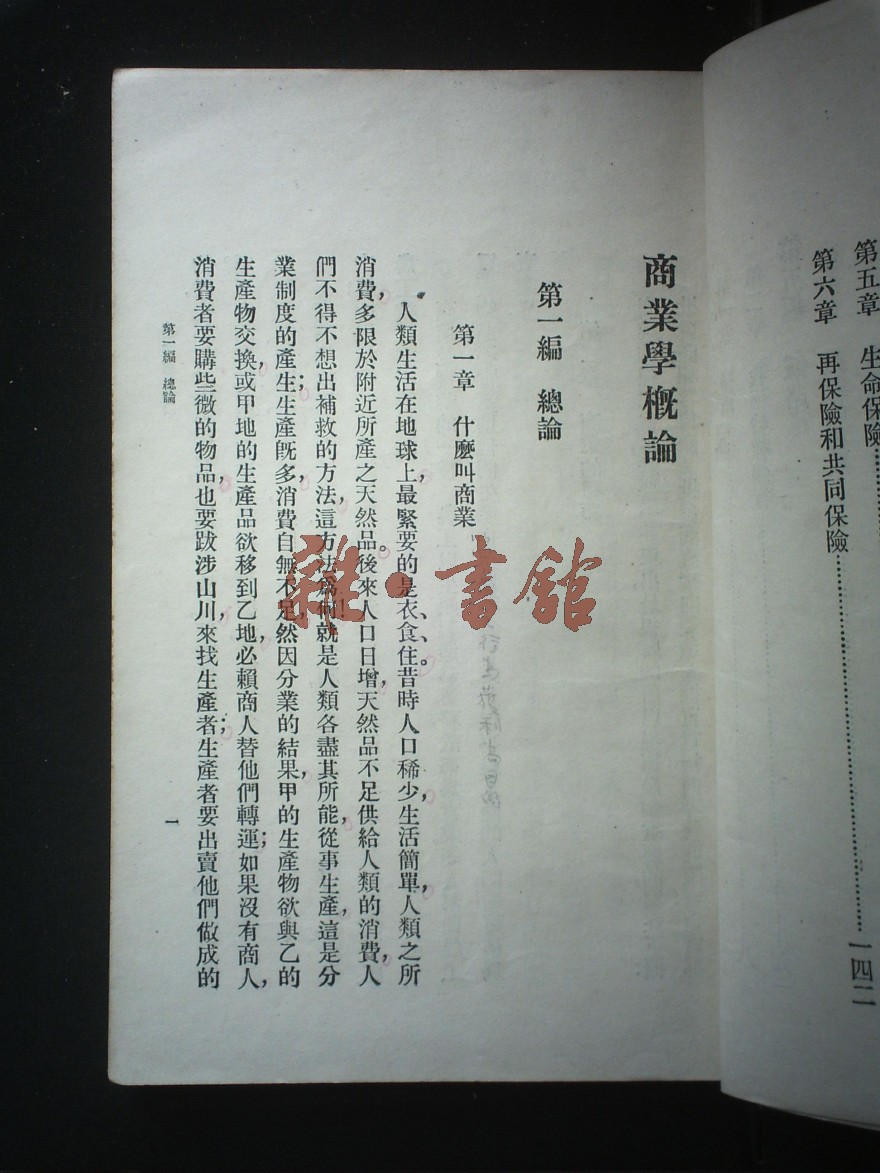 第五章　生命保險……
第六章　再保險和共同保險……一四二
商業學概論
第一編　總論
第一章　什麼叫商業
人類生活在地球上，最緊要的是衣、食、住。昔時人口稀少，生活簡單，人類之所
消費，多限於附近所產之天然品。後來人口日增，天然品不足供給人類的消費，人
們不得不想出補救的方法，這方法爲何！就是人類各盡其所能，從事生產，這是分
業制度的產生；生產旣多，消費自無不足，然因分業的結果，甲的生產物欲與乙的
生產物交換，或甲地的生產品欲移到乙地，必賴商人替他們轉運；如果沒有商人，
消費者要購些微的物品，也要跋涉山川，來找生產者；生產者要出賣他們做成的
第一編　總論
一
雜·書館